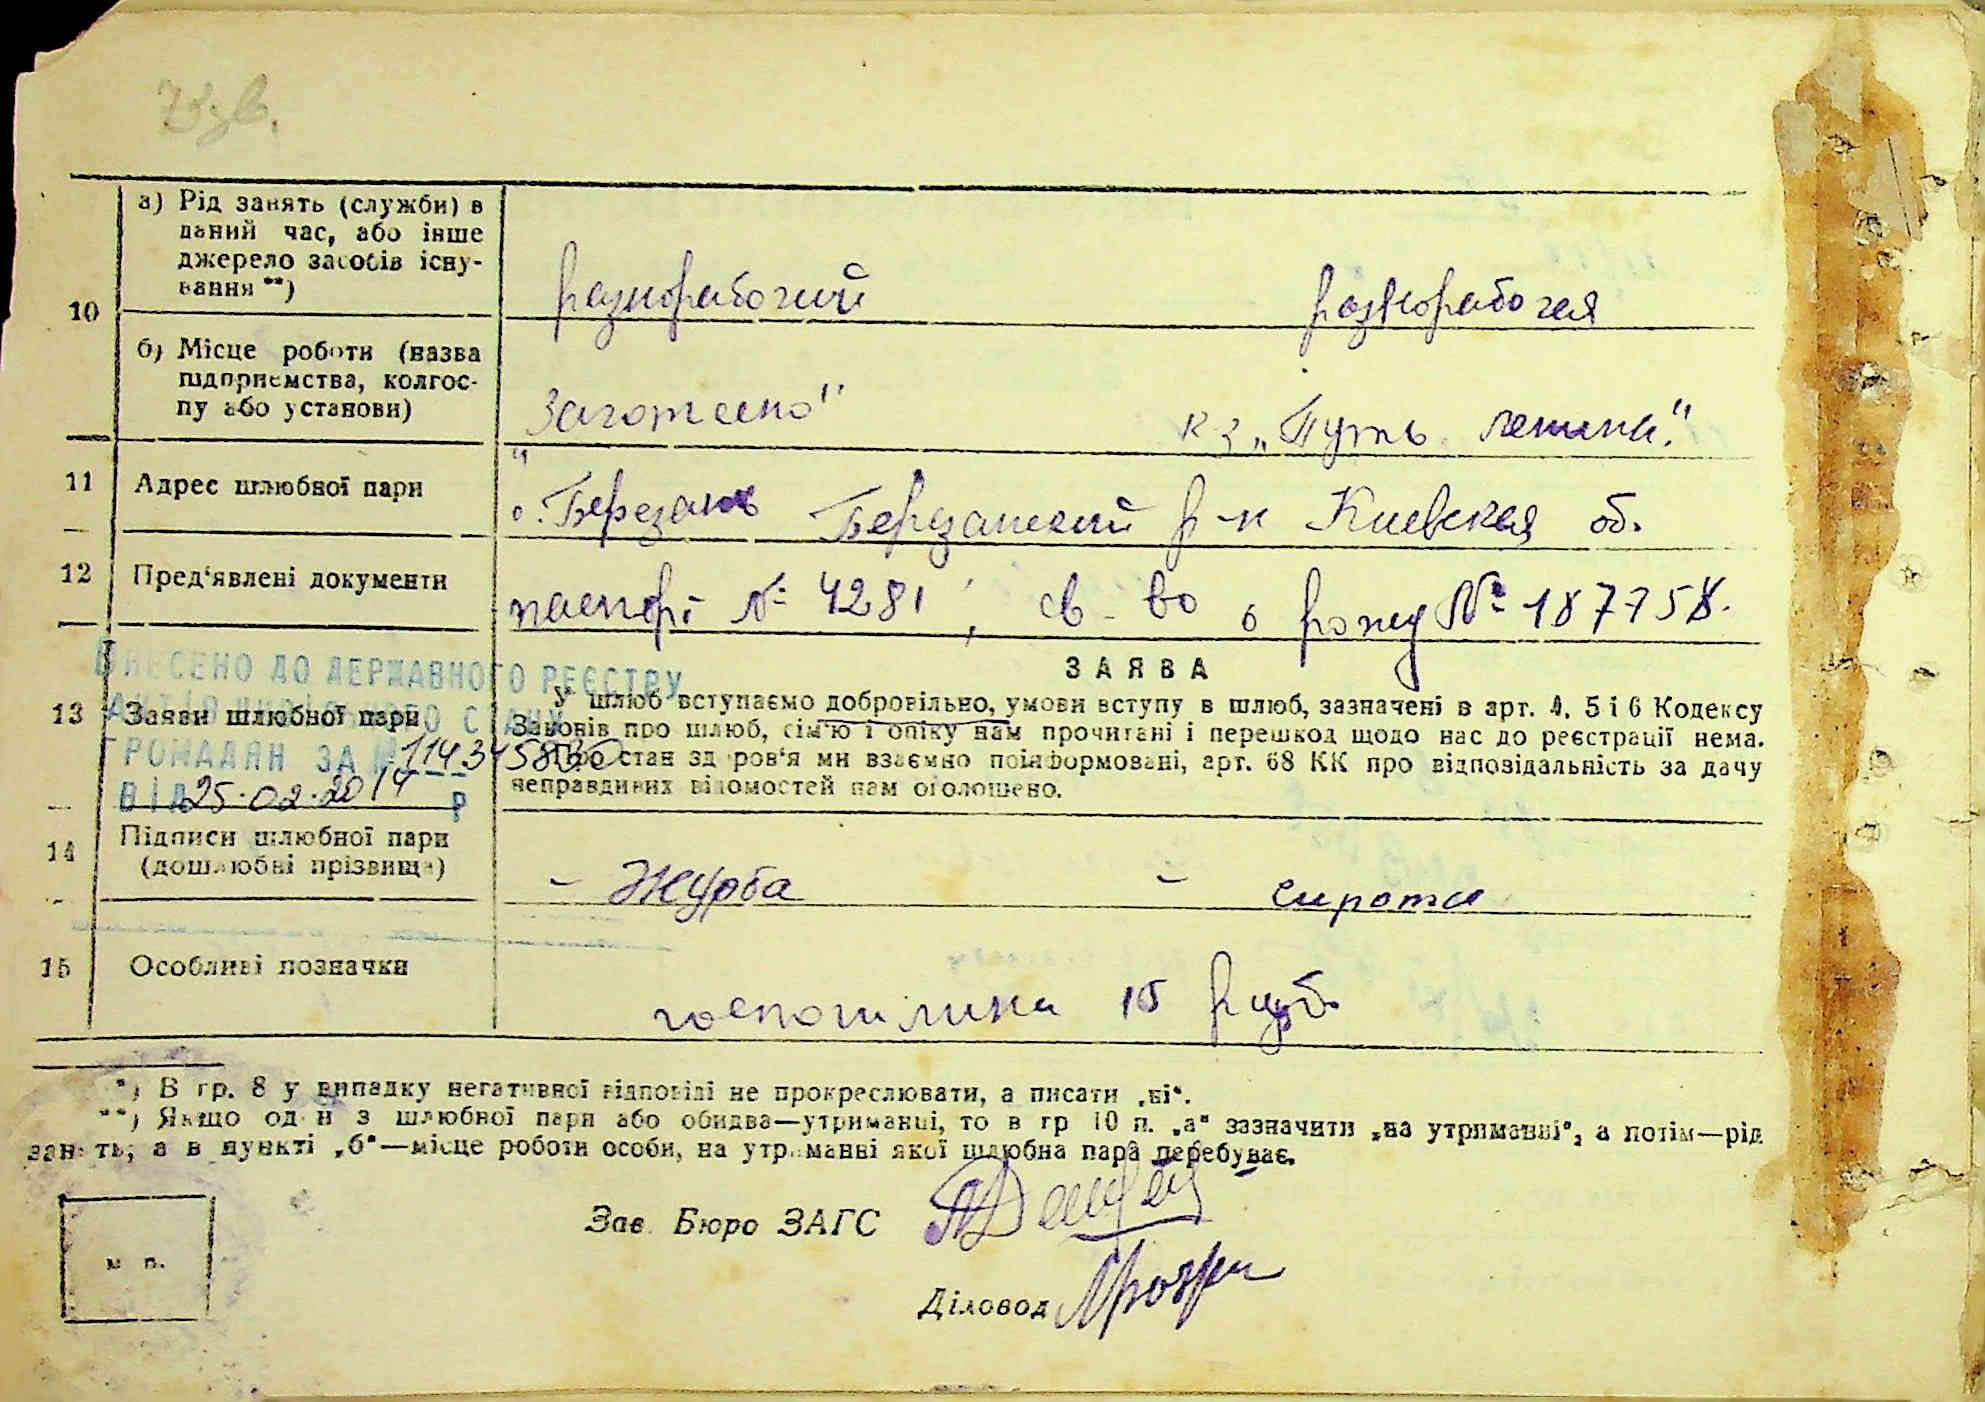 73зв.
10
а) Рід занять (служби) в
даний час, або інше
джерело засобів існу-
вання **)
разнорабочий разнорабочая
б) Місце роботи (назва
підприємства, колгос-
пу або установи)
Заготсено" к-з „Путь Ленина."
11 Адрес шлюбної пари
с. Березань Березанский р-н Киевская об.
12 Пред'явлені документи
паспорт № 4281, св-во о рожд №
ВНЕСЕНО ДО ДЕРЖАВНОГО РЕЄСТРУ
АКТІВ ЦИВІЛЬНОГО СТАНУ
ГРОМАДЯН ЗА №
ВІД 25.02.2014 р
13 Заяви шлюбної пари
ЗАЯВА
У шлюб вступаємо добровільно, умови вступу в шлюб, зазначені в арт. 4, 5 і 6 Кодексу
Законів про шлюб, сім'ю і опіку нам прочитані і перешкод щодо нас до реєстрації нема.
Про стан здоров'я ми взаємно поінформовані, арт. 68 КК про відповідальність за дачу
неправдивих відомостей нам оголошено.
14 Підписи шлюбної пари
(дошлюбні прізвища)
– Журба – сирота
15 Особливі позначки
госпошлина 15 руб.
*) В гр. 8 у випадку негативної відповіді не прокреслювати, а писати „ні“.
**) Якщо один з шлюбної пари або обидва—утриманці, то в гр 10 п. „а“ зазначити „на утриманні“, а потім—рід
занять, а в пункті „б“—місце роботи особи, на утриманні якої шлюбна пара перебуває.
Зав. Бюро ЗАГС
Діловод
м п.